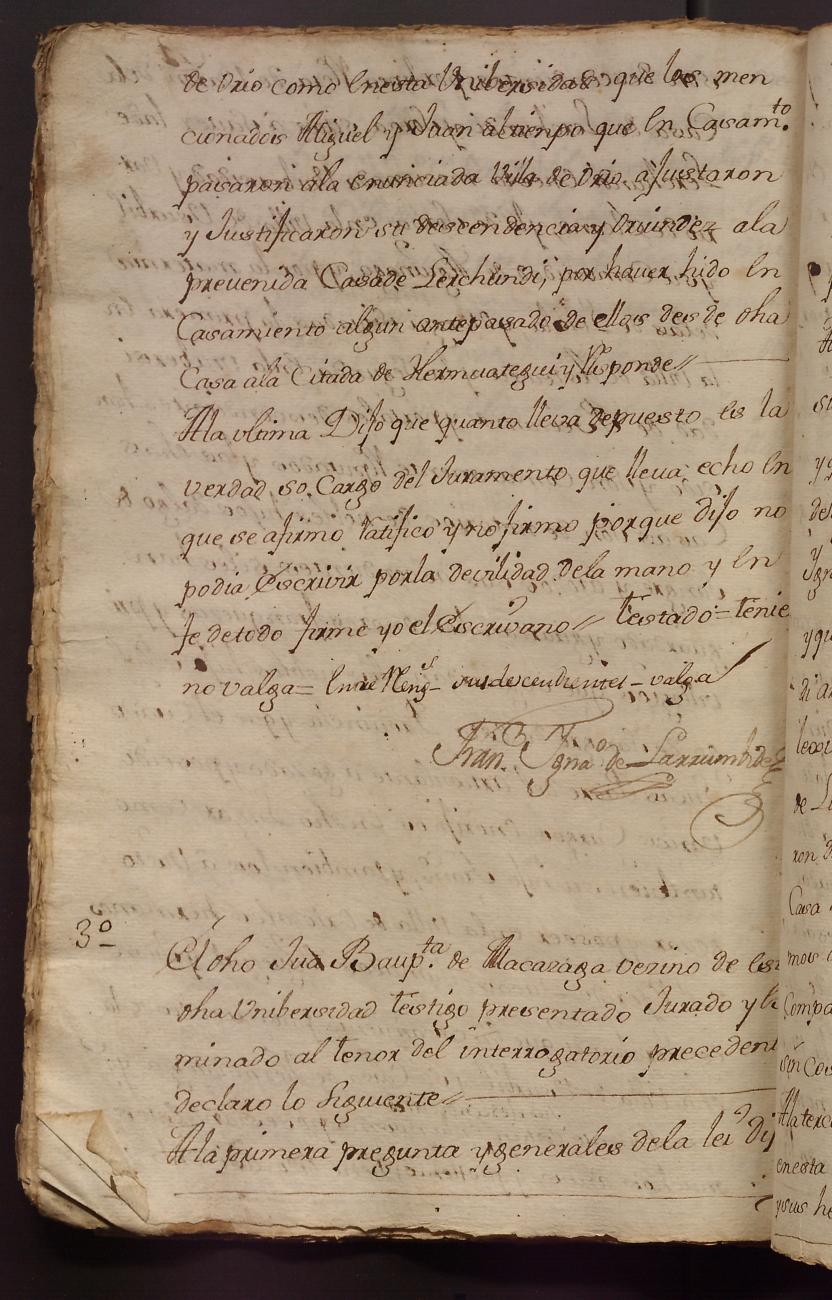 de Orio como en esta Unibersidad que los men
cionados Miguel y Juan al tiempo que en Casam.to
pasaron ala enunciada Villa de Orio ajustaron
y Justificaron su descendencia y Oriundez ala
prevenida Casa de Lerchundi, por haver hido en
Casamiento algun antepasado de ellos desde dha
Casa ala Citada de Hermuategui y Responde //
Ala ultima Dijo que quanto lleva depuesto es la
verdad so Cargo del Juramento que lleva echo en
que se afirmo ratifico y no firmo porque dijo no
podia Escrivir por la devilidad de la mano y en
fe de todo firme yo el Escrivano // testado = tenie
no valga = Entre Reng.s - sus descendientes - valga
Fran.co Ygna.o de Larrumbide
3º
El dho Jua Baup.ta de Macazaga vezino de es
dha Unibersidad testigo presentado Jurado y e
minado al tenor del interrogatorio precedent
declaro lo Siguiente //
Ala primera pregunta y generales de la lei Dij